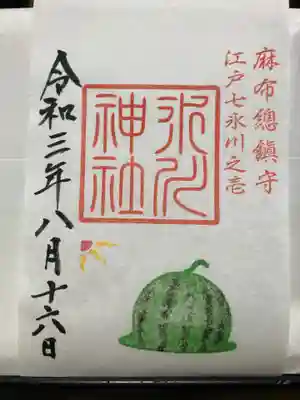 麻布總鎮守
江戸七氷川之壱
氷川神社
令和三年八月十六日